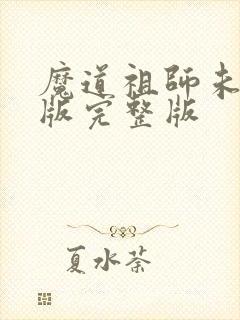 魔道祖師未
版完整版
夏水荼